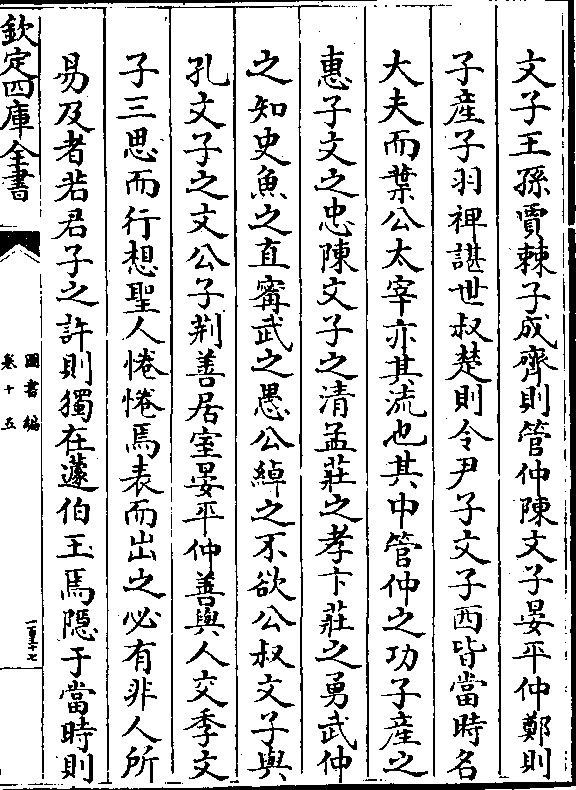 文子王孫賈棘子成齊則管仲陳文子晏平仲鄭則
子産子羽禆諶世叔楚則令尹子文子西皆當時名
大夫而葉公太宰亦其流也其中管仲之功子産之
惠子文之忠陳文子之清孟莊之孝卞莊之勇武仲
之知史魚之直甯武之愚公綽之不欲公叔文子與
孔文子之文公子荆善居室晏平仲善與人交季文
子三思而行想聖人惓惓焉表而出之必有非人所
易及者若君子之許則獨在蘧伯玉焉隱于當時則
欽定四庫全書
圖書編
卷十五